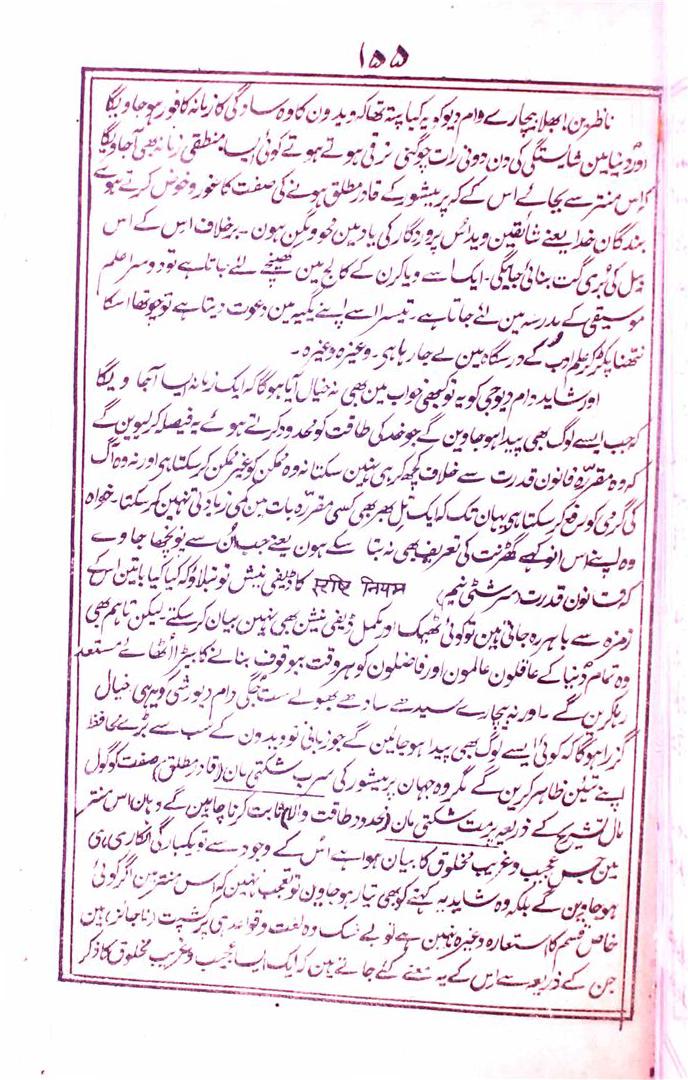 ۱۵۵
ناظرین! بھلا بیچارے وام دیو کو یہ کیا پتہ تھا کہ ویدون کا وہ سادگی کا زمانہ کافور ہو جاویگا
اور دنیا مین شایستگی کی دن دونی رات چوگنی ترقی ہوتے ہوتے کوئی ایسا منطقی زمانہ بھی آجاویگا
کہ اس منتر سے بجائے اس کے کہ پرمیشور کے قادر مطلق ہونے کی صفت کا غور و خوض کرتے ہوئے
بندگان خدا یعنے شائقین وید اس پروردگار کی یاد مین محو و مگن ہون ۔ برخلاف اس کے اس
بیل کی بُری گت بنائی جائیگی ۔ ایک اسے ویاکرن کے کالج مین کھینچے لئے جاتا ہے تو دوسرا علم
موسیقی کے مدرسہ مین لئے جاتا ہے ۔ تیسرا اسے اپنے یگیہ مین دعوت دیتا ہے تو چوتھا اسکا
نتھنا پکڑ کر علم ادب کے درسگاہ مین لے جا رہا ہی ۔ وغیرہ وغیرہ ۔
اور شاید وام دیو جی کو یہ تو کبھی خواب مین بھی نہ خیال آیا ہوگا کہ ایک زمانہ ایسا آجا ویگا
کہ جب ایسے لوگ بھی پیدا ہو جاوین گے جو خدا کی طاقت کو محدود کرتے ہوئے یہ فیصلہ کر لیوین گے
کہ وہ مقررہ قانون قدرت سے خلاف کچھ کر ہی نہین سکتا نہ وہ ممکن کو غیر ممکن کر سکتا ہی اور نہ وہ آگ
کی گرمی کو رفع کر سکتا ہی یہان تک کہ ایک پل بھر بھی کسی مقررہ بات مین کمی زیادتی نہین کر سکتا ۔ خواہ
وہ اپنے اس انوکھے گھڑنت کی تعریف بھی نہ بتا سکے ہون یعنے جب اُن سے پوچھا جاوے
کہ قانون قدرت (سرشٹی نیم) सृष्टि नियम کا ڈیفی نیشن تو بتلاؤ کہ کیا کیا باتین اس کے
زمرہ سے باہر رہ جاتی ہین تو کوئی ٹھیک اور مکمل ڈیفی نیشن بھی نہین بیان کر سکتے لیکن تاہم بھی
وہ تمام دنیا کے عاقلون عالمون اور فاضلون کو ہر وقت بیوقوف بنانے کا بیڑا اُٹھائے مستعد
رہا کرین گے ۔ اور نہ بیچارے سیدھے سادھے بھولے ست جگی وام دیو رشی کو یہی خیال
گزرا ہوگا کہ کوئی ایسے لوگ بھی پیدا ہو جائین گے جو زبانی تو ویدون کے سب سے بڑے محافظ
اپنے تئین ظاہر کرین گے مگر وہ جہان پرمیشور کی سرب شکتی مان (قادر مطلق) صفت کو گول
مال تشریح کے ذریعہ پرمت شکتی مان (محدود طاقت والا) ثابت کرنا چاہین گے وہان اس منتر
مین جس عجیب و غریب مخلوق کا بیان ہوا ہے اس کے وجود سے تو یکبارگی انکاری ہی
ہو جاوین گے بلکہ وہ شاید یہ کہنے کو بھی تیار ہو جاون تو تعجب نہین کہ اس منتر مین اگر کوئی
خاص قسم کا استعارہ وغیرہ نہین ہے تو بے شک وہ لغت و قواعد ہی بھرشٹ (ناجائز) ہین
جن کے ذریعہ سے اس کے یہ معنے کئے جاتے ہین کہ ایک ایسا عجیب و غریب مخلوق کا ذکر